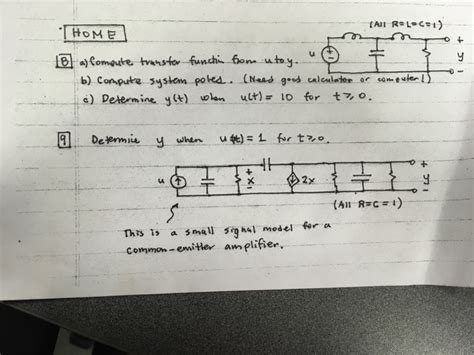 HOME
(All R=L=C=1)
8 a) Compute transfer functin from u to y.
u + - + y -
b) Compute system poles. (Need good calculator or computer!)
c) Determine y(t) when u(t) = 10 for t ≥ 0.
9 Determine y when u(t) = 1 for t ≥ 0.
u + x - 2x + y -
(All R=C=1)
This is a small signal model for a
common-emitter amplifier.